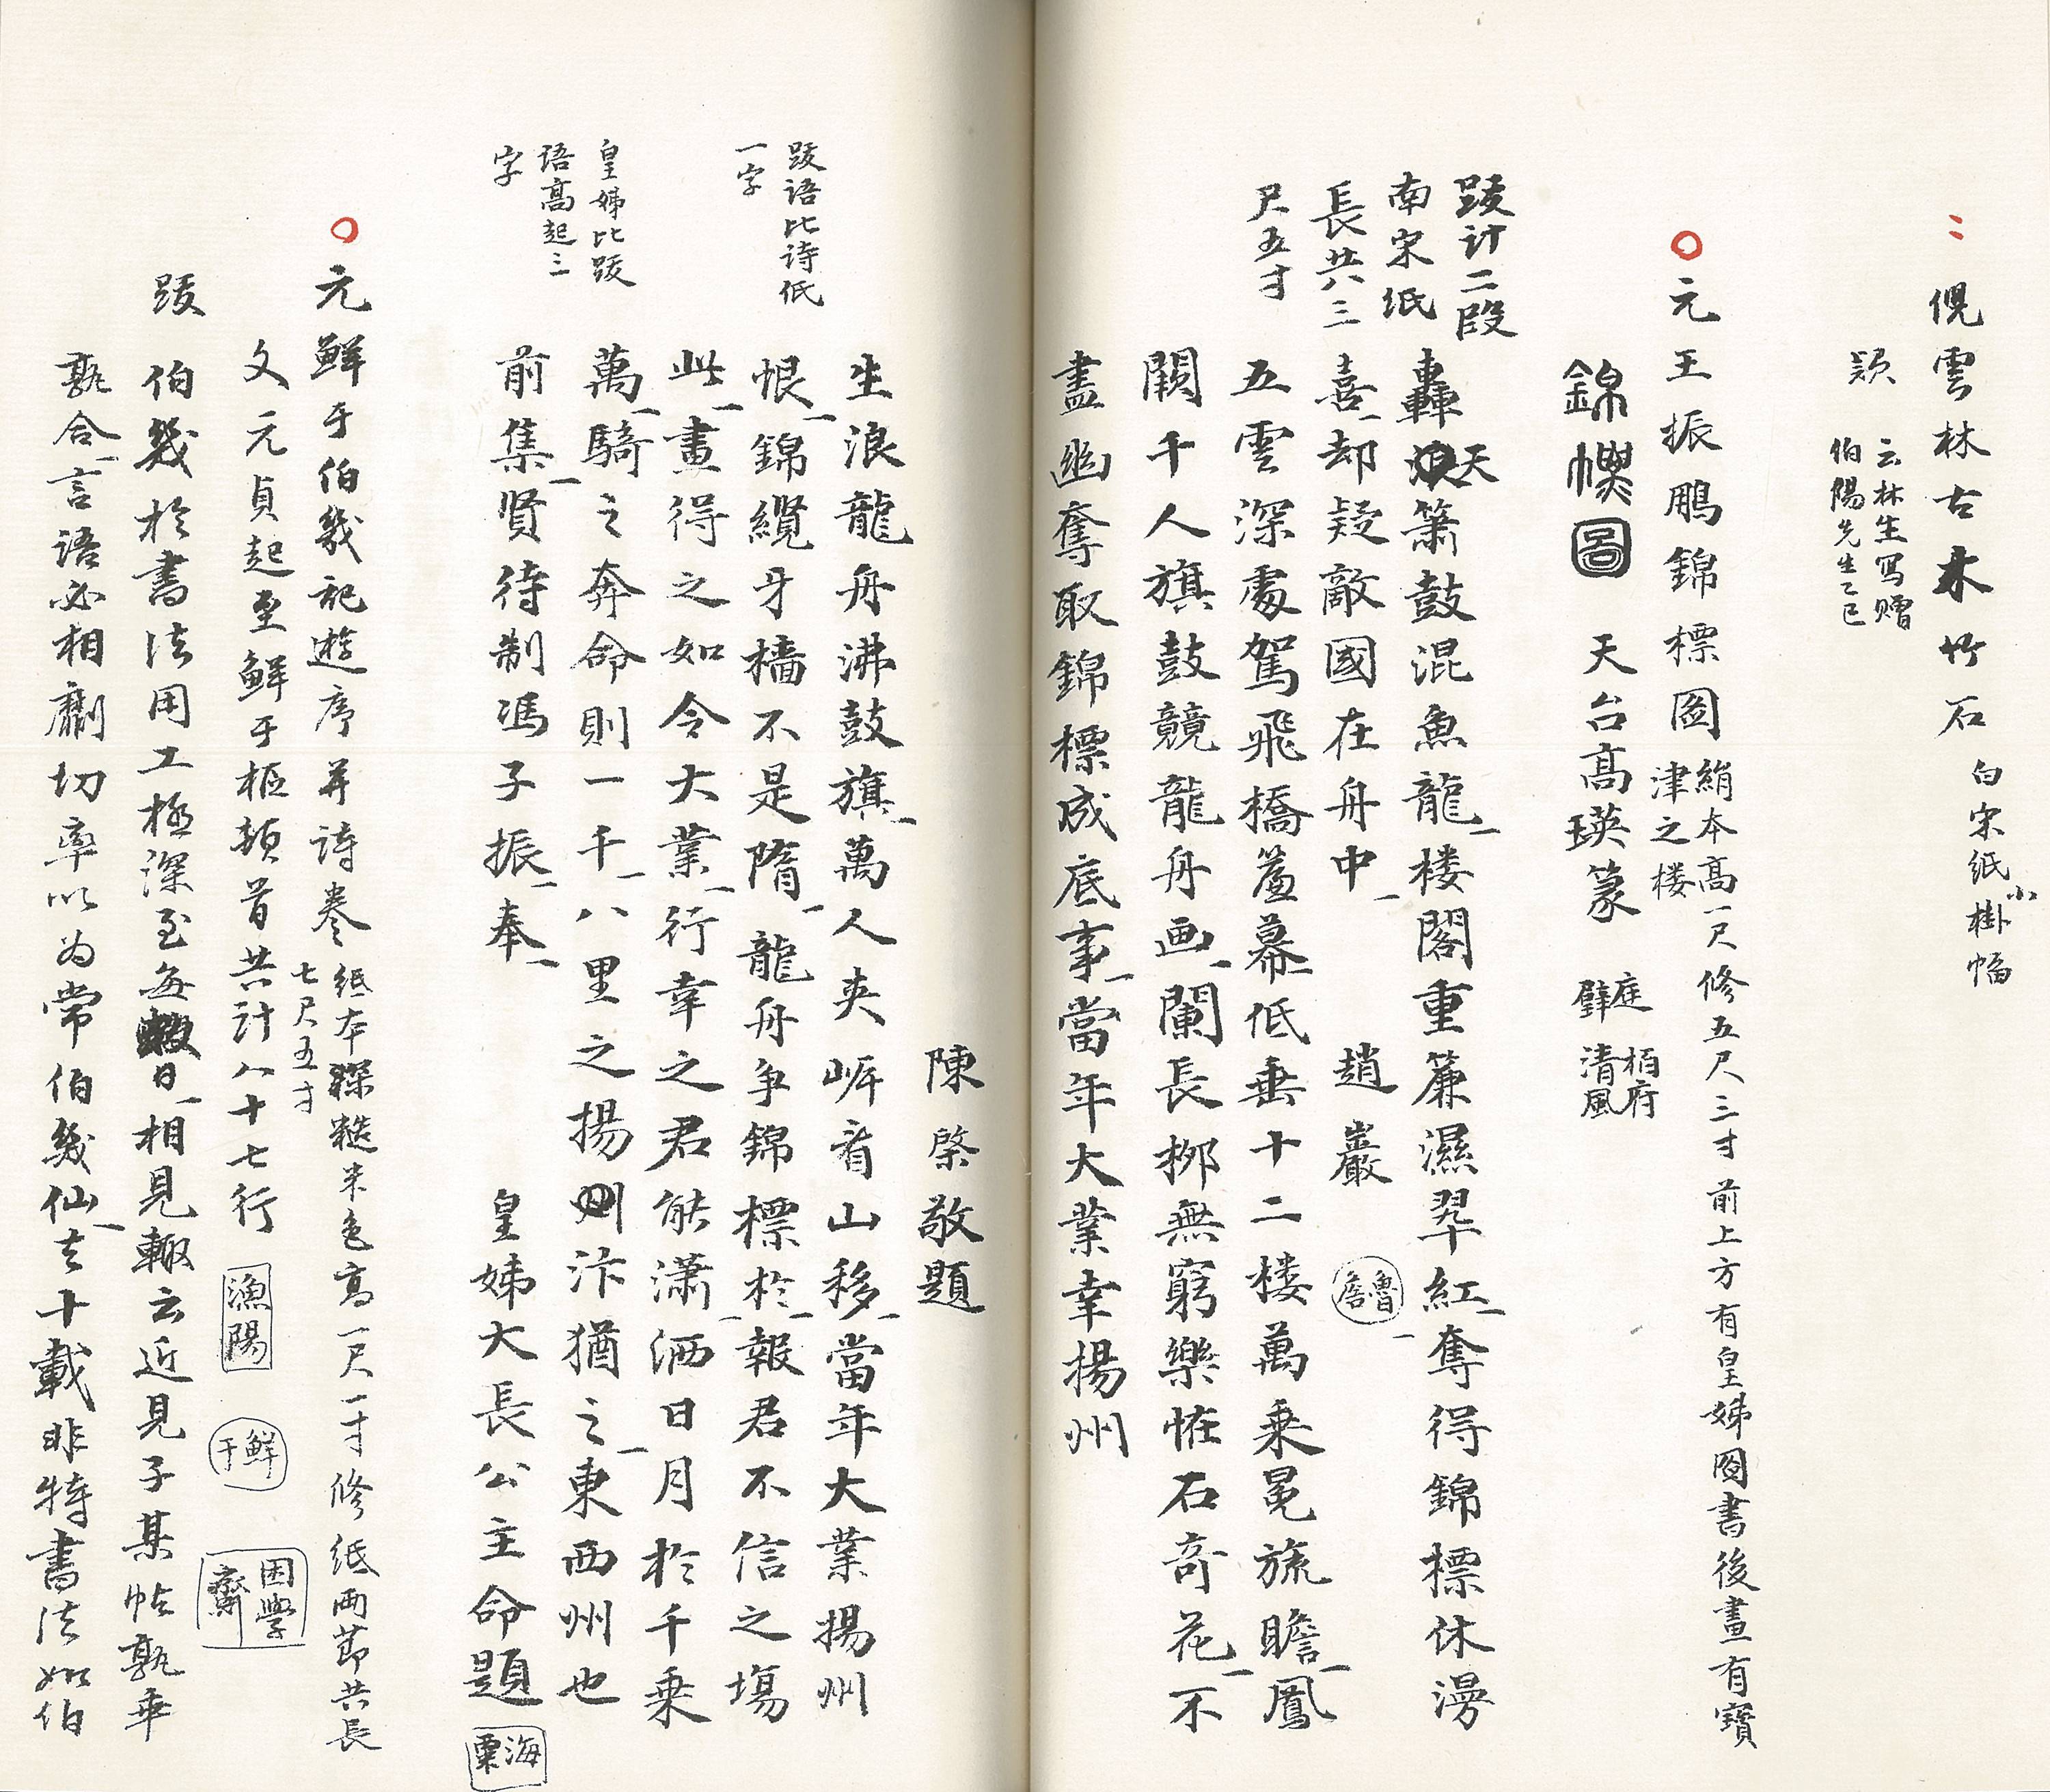 倪雲林古木竹石 白宋紙小掛幅
款 云林生写赠
伯陽先生乙巳
元王振鵬錦標圖 絹本高一尺修五尺三寸前上方有皇姊圖書後畫有寶
津之楼
錦幖圖 天台高瑛篆
庭柏府
清風
跋计二段
南宋纸
長共三
尺五寸
轟天簫鼓混魚龍楼閣重簾濕翠紅奪得錦標休漫
喜却疑敵國在舟中 趙巖 魯詹
五雲深處駕飛橋簾幕低垂十二楼萬乘冕旒瞻鳳
闕千人旗鼓競龍舟画闌長柳無窮樂恠石奇花不
盡幽奪取錦標成底事當年大業幸揚州
陳棨敬題
跋语比诗低
一字
生浪龍舟沸鼓旗萬人夾岸看山移當年大業揚州
恨錦纜牙檣不是隋龍舟争錦標於報君不信之塲
此畫得之如令大業行幸之君能瀟洒日月於千乘
萬騎之奔命則一千八里之揚州汴猶之東西州也
皇姊比跋
语高起三
字
前集賢待制馮子振奉 皇姊大長公主命題 海粟
元鮮于伯幾記遊序并诗卷 纸本深糙米色高一尺一寸修纸两節共長
七尺五寸
文元貞起至鮮于枢頓首共計八十七行 漁陽 鮮于 困學齋
跋 伯幾於書法用工極深至每日相見輒云近見子某帖孰乖
孰合言语必相劘切率以为常伯幾仙去十載非特書法如伯